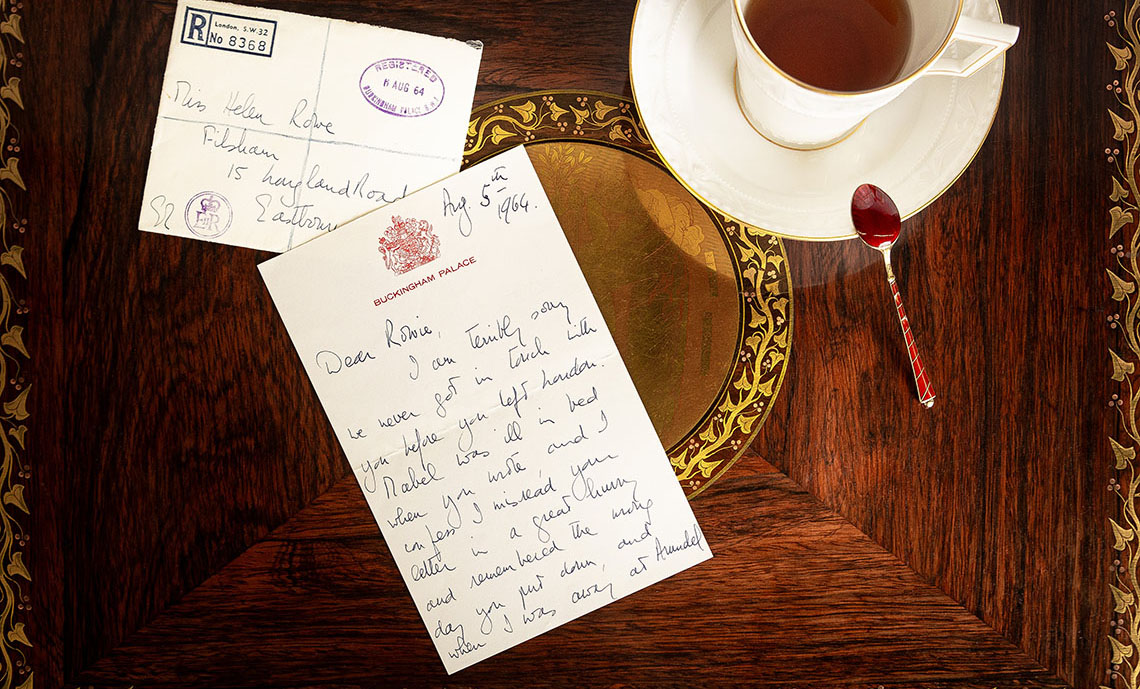 R London, S.W.32
No 8368
REGISTERED
AUG 64
BUCKINGHAM PALACE S.W.1
Miss Helen Rowe
Filsham
15 Road
Eastbour
EIIR
Aug 5th
1964.
BUCKINGHAM PALACE
Dear Rowie,
I am terribly sorry
we never got in touch with
you before you left London.
Mabel was ill in bed
when you wrote, and I
confess I misread your
letter in a great hurry
and remembered the wrong
day you put down, and
when I was away at Arundel